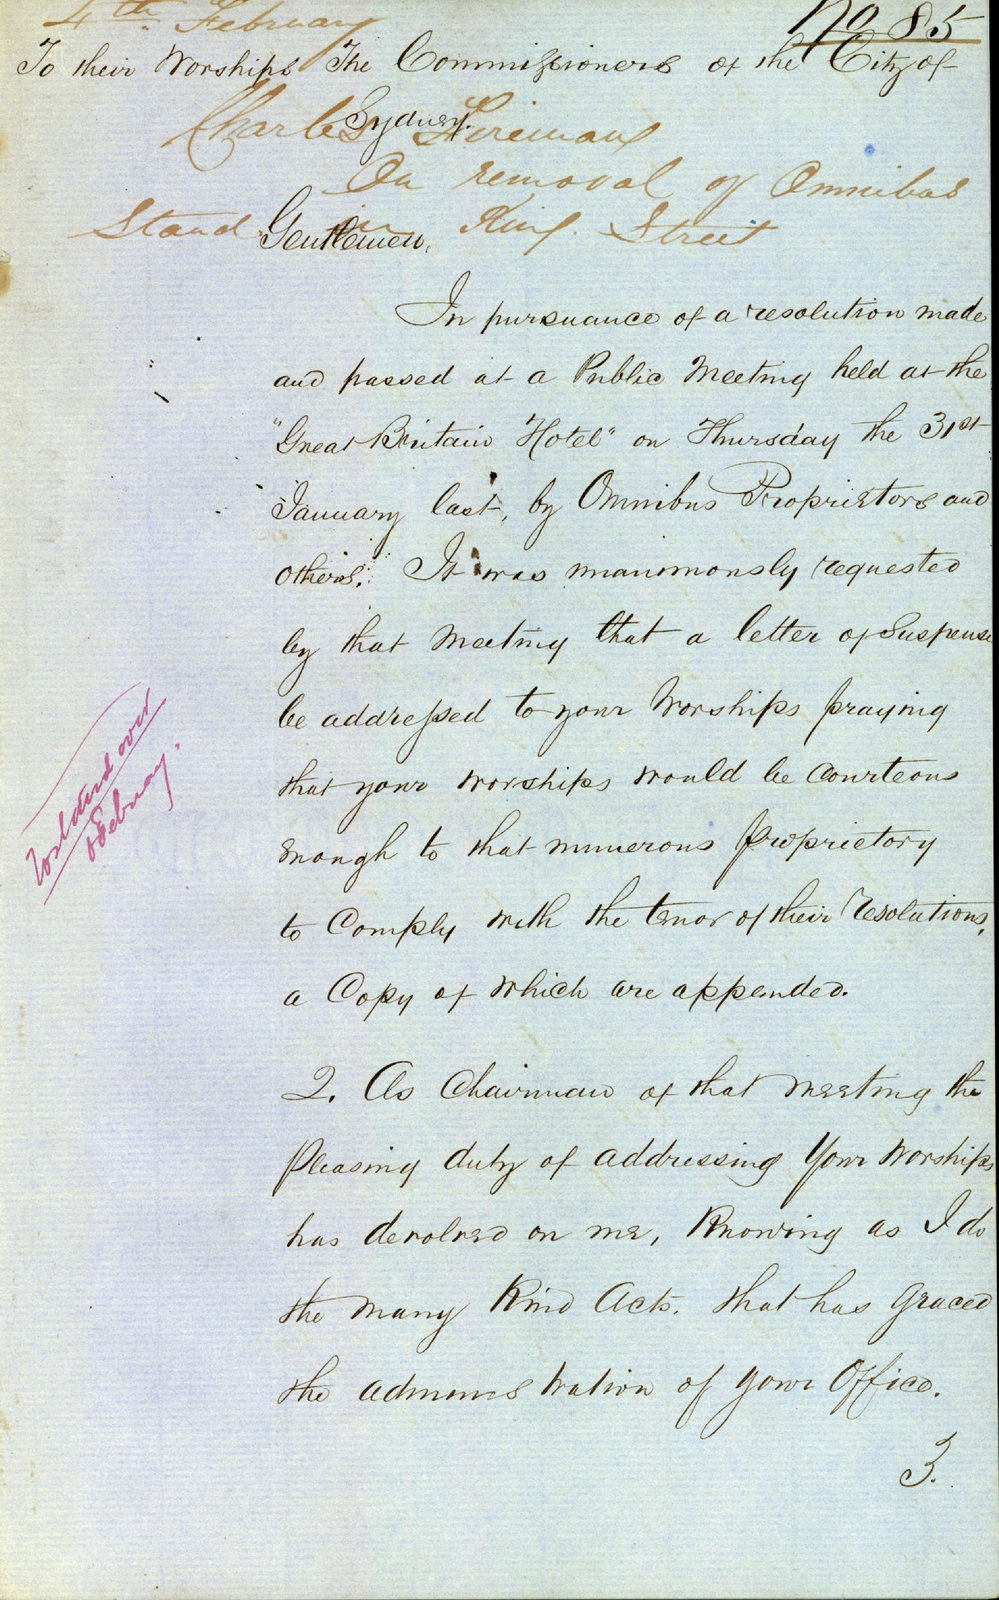 4th February
No 85
To their Worships The Commissioners of the City of
Sydney.
Charles
On removal of Omnibus
Stand in King Street
Gentlemen,
In pursuance of a resolution made
and passed at a Public Meeting held at the
"Great Britain Hotel" on Thursday the 31st
January last, by Omnibus Proprietors and
others. It was unanimously requested
by that Meeting that a letter of Suspense
be addressed to your Worships praying
that your Worships would be Courteous
enough to that numerous proprietory
to Comply with the tenor of their Resolutions,
a Copy of which are appended.
over
February.
2. As Chairman of that Meeting the
Pleasing duty of addressing Your Worships
has devolved on me, Knowing as I do
the many Kind Acts. that has graced
the administration of your Office.
3.